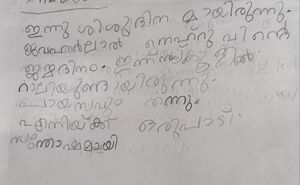 ഇന്നു ശിശുദിന മായിരുന്നു.
ജവഹർലാൽ നെഹ്റു വിന്റെ
ജന്മദിനം. ഇന്ന്
റാലിയുണ്ടായിരുന്നു.
പായസവും തന്നു.
എനിയ്ക്ക് ഒരുപാട്
സന്തോഷമായി